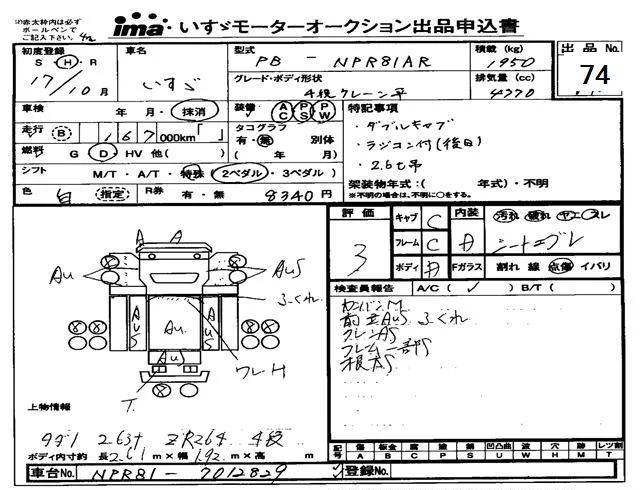 (注)赤太枠内は必ず
ボールペンで
ご記入下さい。
ima いすゞモーターオークション出品申込書
初度登録 車名 型式 PB - NPR81AR 積載 (kg) 1950 出品No. 74
S・H・R 17/10月 いすゞ グレード・ボディ形状 4段クレーン平 排気量 (cc) 4770
車検 年 月・抹消 装備 AC PS PW 特記事項
走行 B 167 000km「 」 タコグラフ 有・無 別体 ・ダブルキャブ
燃料 G D・HV 他( ) ( 年 月) ・ラジコン付(後日)
シフト M/T・A/T・特殊 2ペダル・3ペダル ・2.6t吊
色 白 (指定) R券 有・無 8340円 架装物年式:( 年式)・不明
※不明の場合は、不明に○をする。
評価 3 キャブ C 内装 A 汚れ 破れ ヤニ スレ
フレーム C シートスレ
ボディ A Fガラス 割れ 線 点傷 イバリ
検査員報告 A/C( ✓ ) B/T( )
カンバンM
前立AUS ふくれ
クレンAS
フレーム一部S
木根大S
A A
AU AUS
ふくれ
AUS AU. AUS
AUS
フレH
T.
上物情報
タダノ 263t ZR264 4段
ボディ内寸約 長2.61m×幅1.92m×高 m
記号 傷 凹 板金 腐 塗 錆 凹凸曲 波 穴 跡 レツ割
A B C P S U W H M T
車台No. NPR81-7012829 登録No.